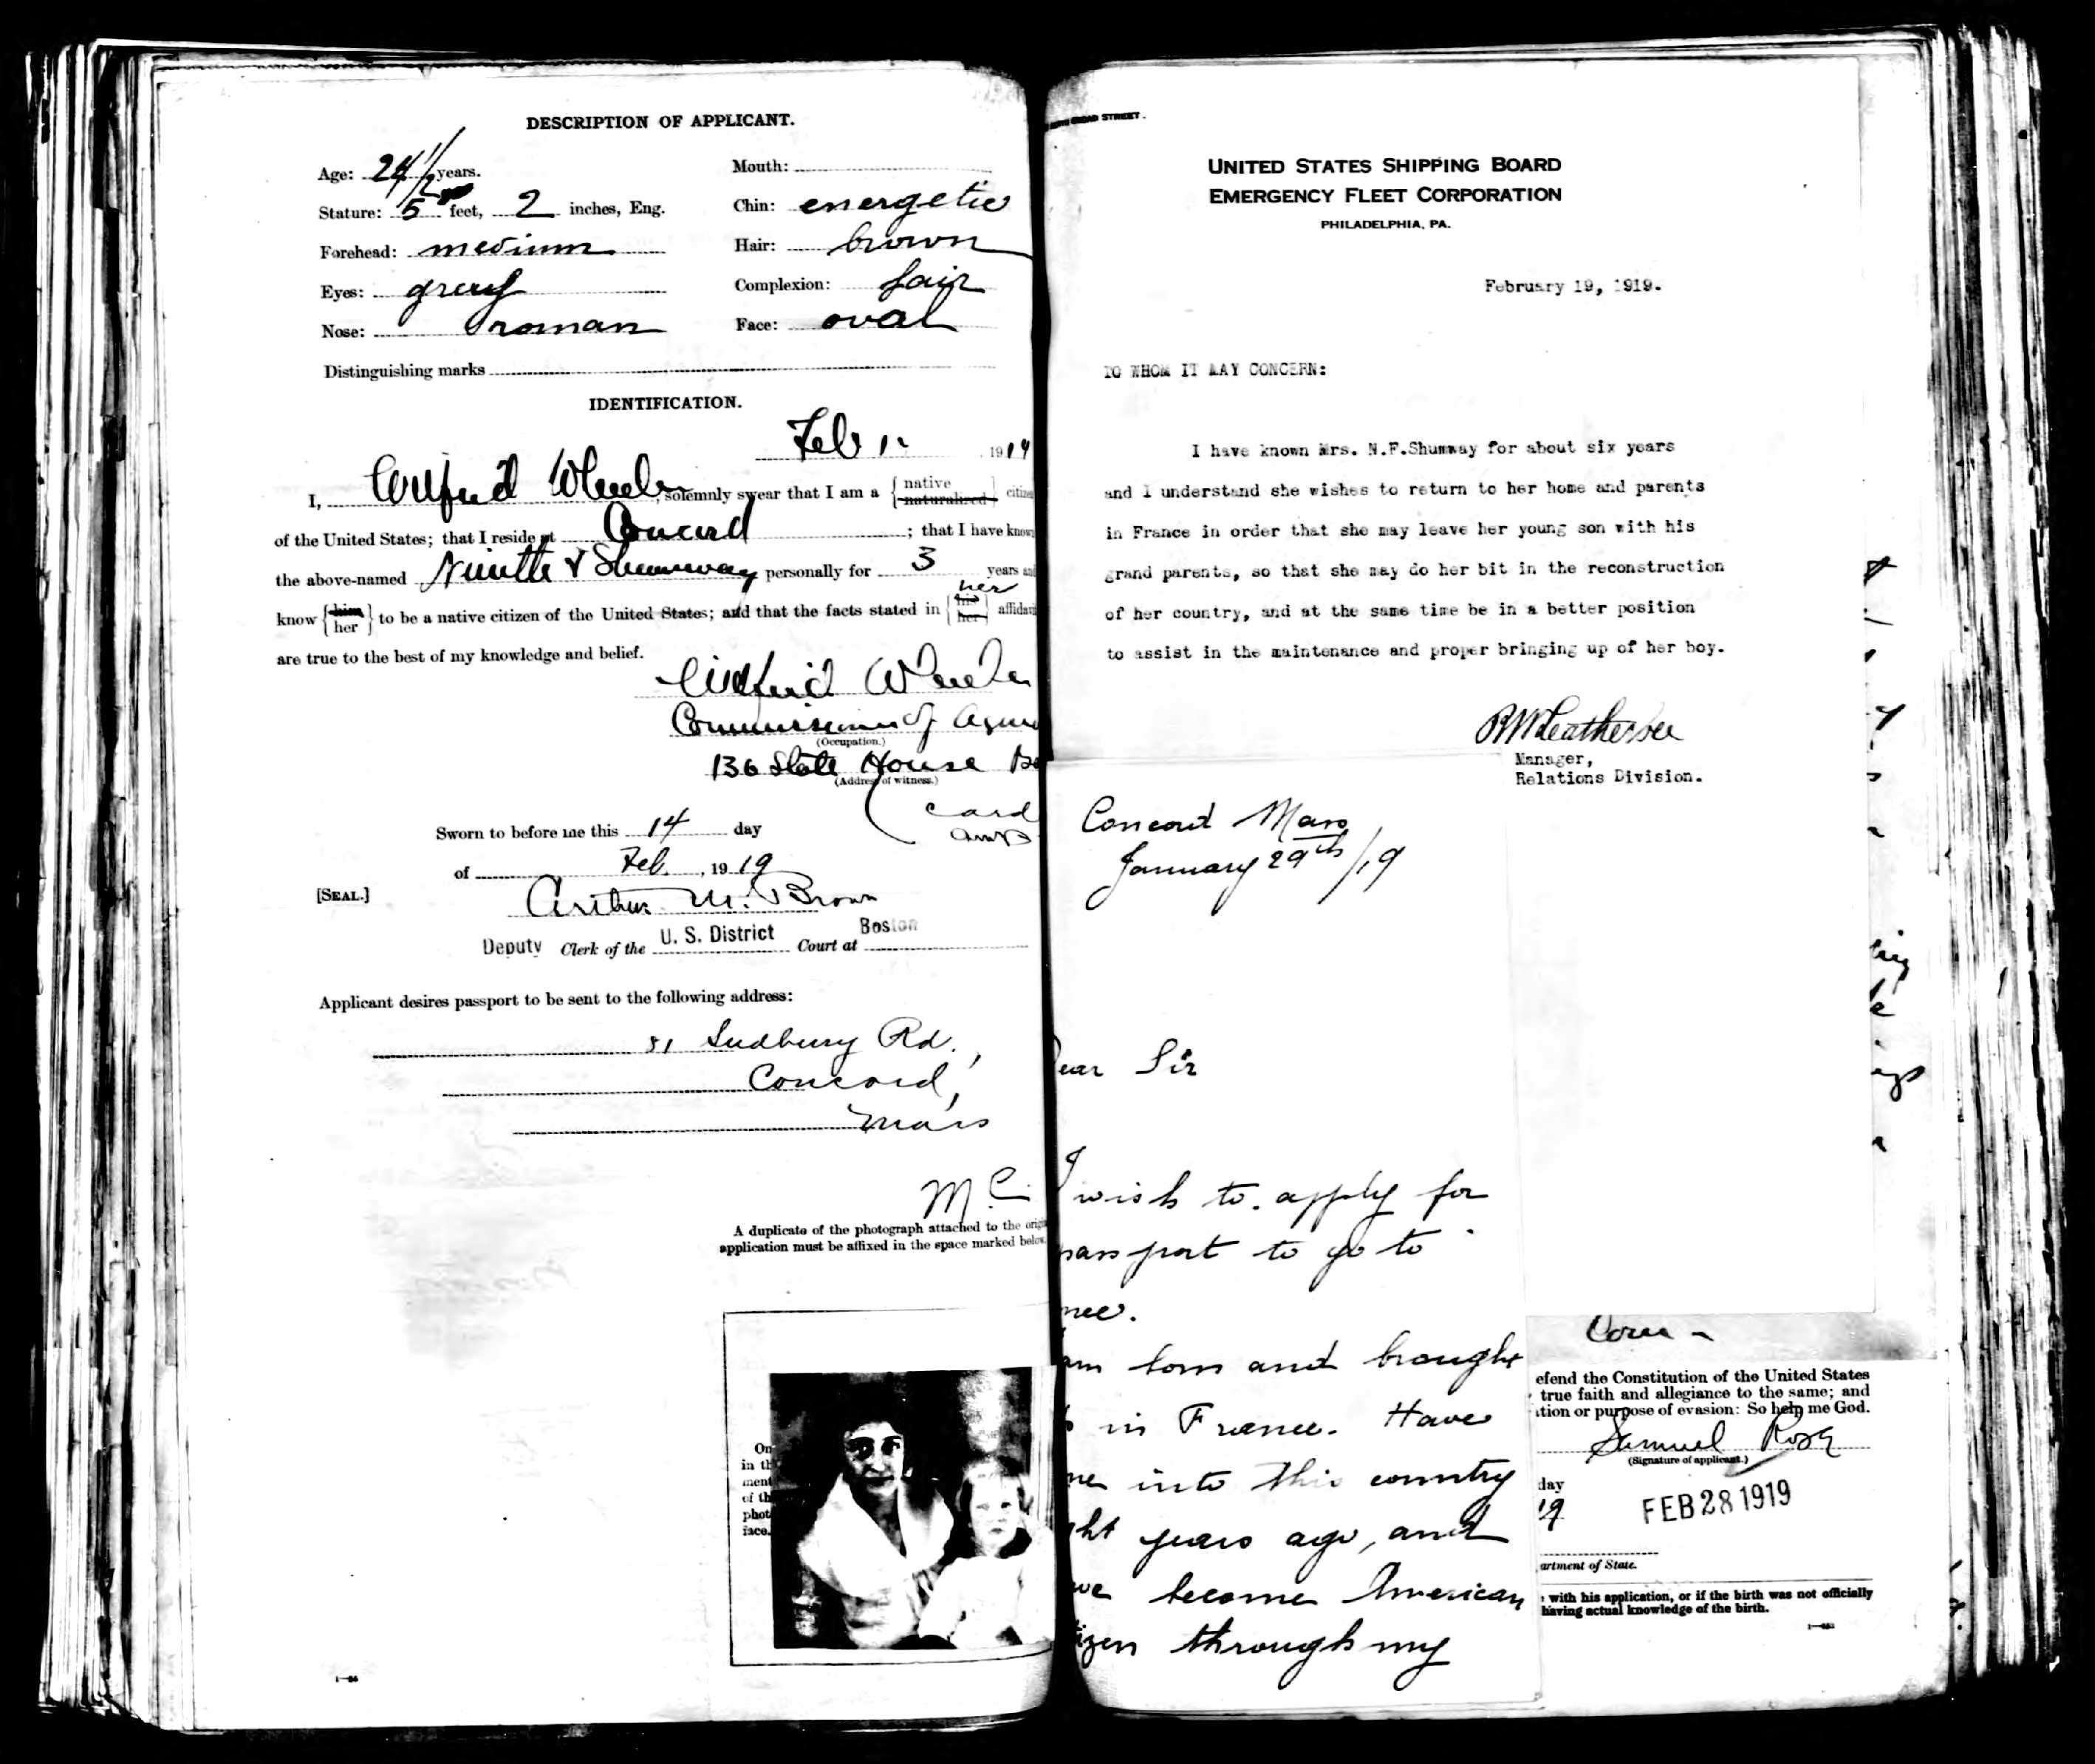 DESCRIPTION OF APPLICANT.
Age: 24 1/2 years.
Stature: 5 feet, 2 inches, Eng.
Forehead: medium
Eyes: grey
Nose: roman
Mouth:
Chin: energetic
Hair: brown
Complexion: fair
Face: oval
Distinguishing marks
IDENTIFICATION.
Feb 1919
I, Wilfrid Wheeler, solemnly swear that I am a {native naturalized}
of the United States; that I reside at Concord; that I have know
the above-named Ninette F Shumway personally for 3 years
know {him her} to be a native citizen of the United States; and that the facts stated in her {his her}
are true to the best of my knowledge and belief.
Wilfrid Wheeler
Commissioner of
(Occupation.)
136 State House
(Address of witness.)
card
Sworn to before me this 14 day
of Feb., 1919
[SEAL.]
Arthur M. Brown
Deputy Clerk of the U. S. District Court at Boston
Applicant desires passport to be sent to the following address:
51 Sudbury Rd.,
Concord,
Mass
A duplicate of the photograph attached to the
application must be affixed in the space marked
On
in th
ment
of th
phot
face.
BROAD STREET.
UNITED STATES SHIPPING BOARD
EMERGENCY FLEET CORPORATION
PHILADELPHIA, PA.
February 19, 1919.
TO WHOM IT MAY CONCERN:
I have known Mrs. N.F.Shumway for about six years
and I understand she wishes to return to her home and parents
in France in order that she may leave her young son with his
grand parents, so that she may do her bit in the reconstruction
of her country, and at the same time be in a better position
to assist in the maintenance and proper bringing up of her boy.
Manager,
Relations Division.
Concord Mass
January 29th/19
ear Sir
I wish to apply for
passport to go to
nce.
am born and brought
in France. Have
me into this country
ght years ago, and
ve become American
tizen through my
efend the Constitution of the United States
true faith and allegiance to the same; and
tion or purpose of evasion: So help me God.
Samuel Rose
(Signature of applicant.)
day
19
FEB 28 1919
artment of State.
with his application, or if the birth was not officially
having actual knowledge of the birth.